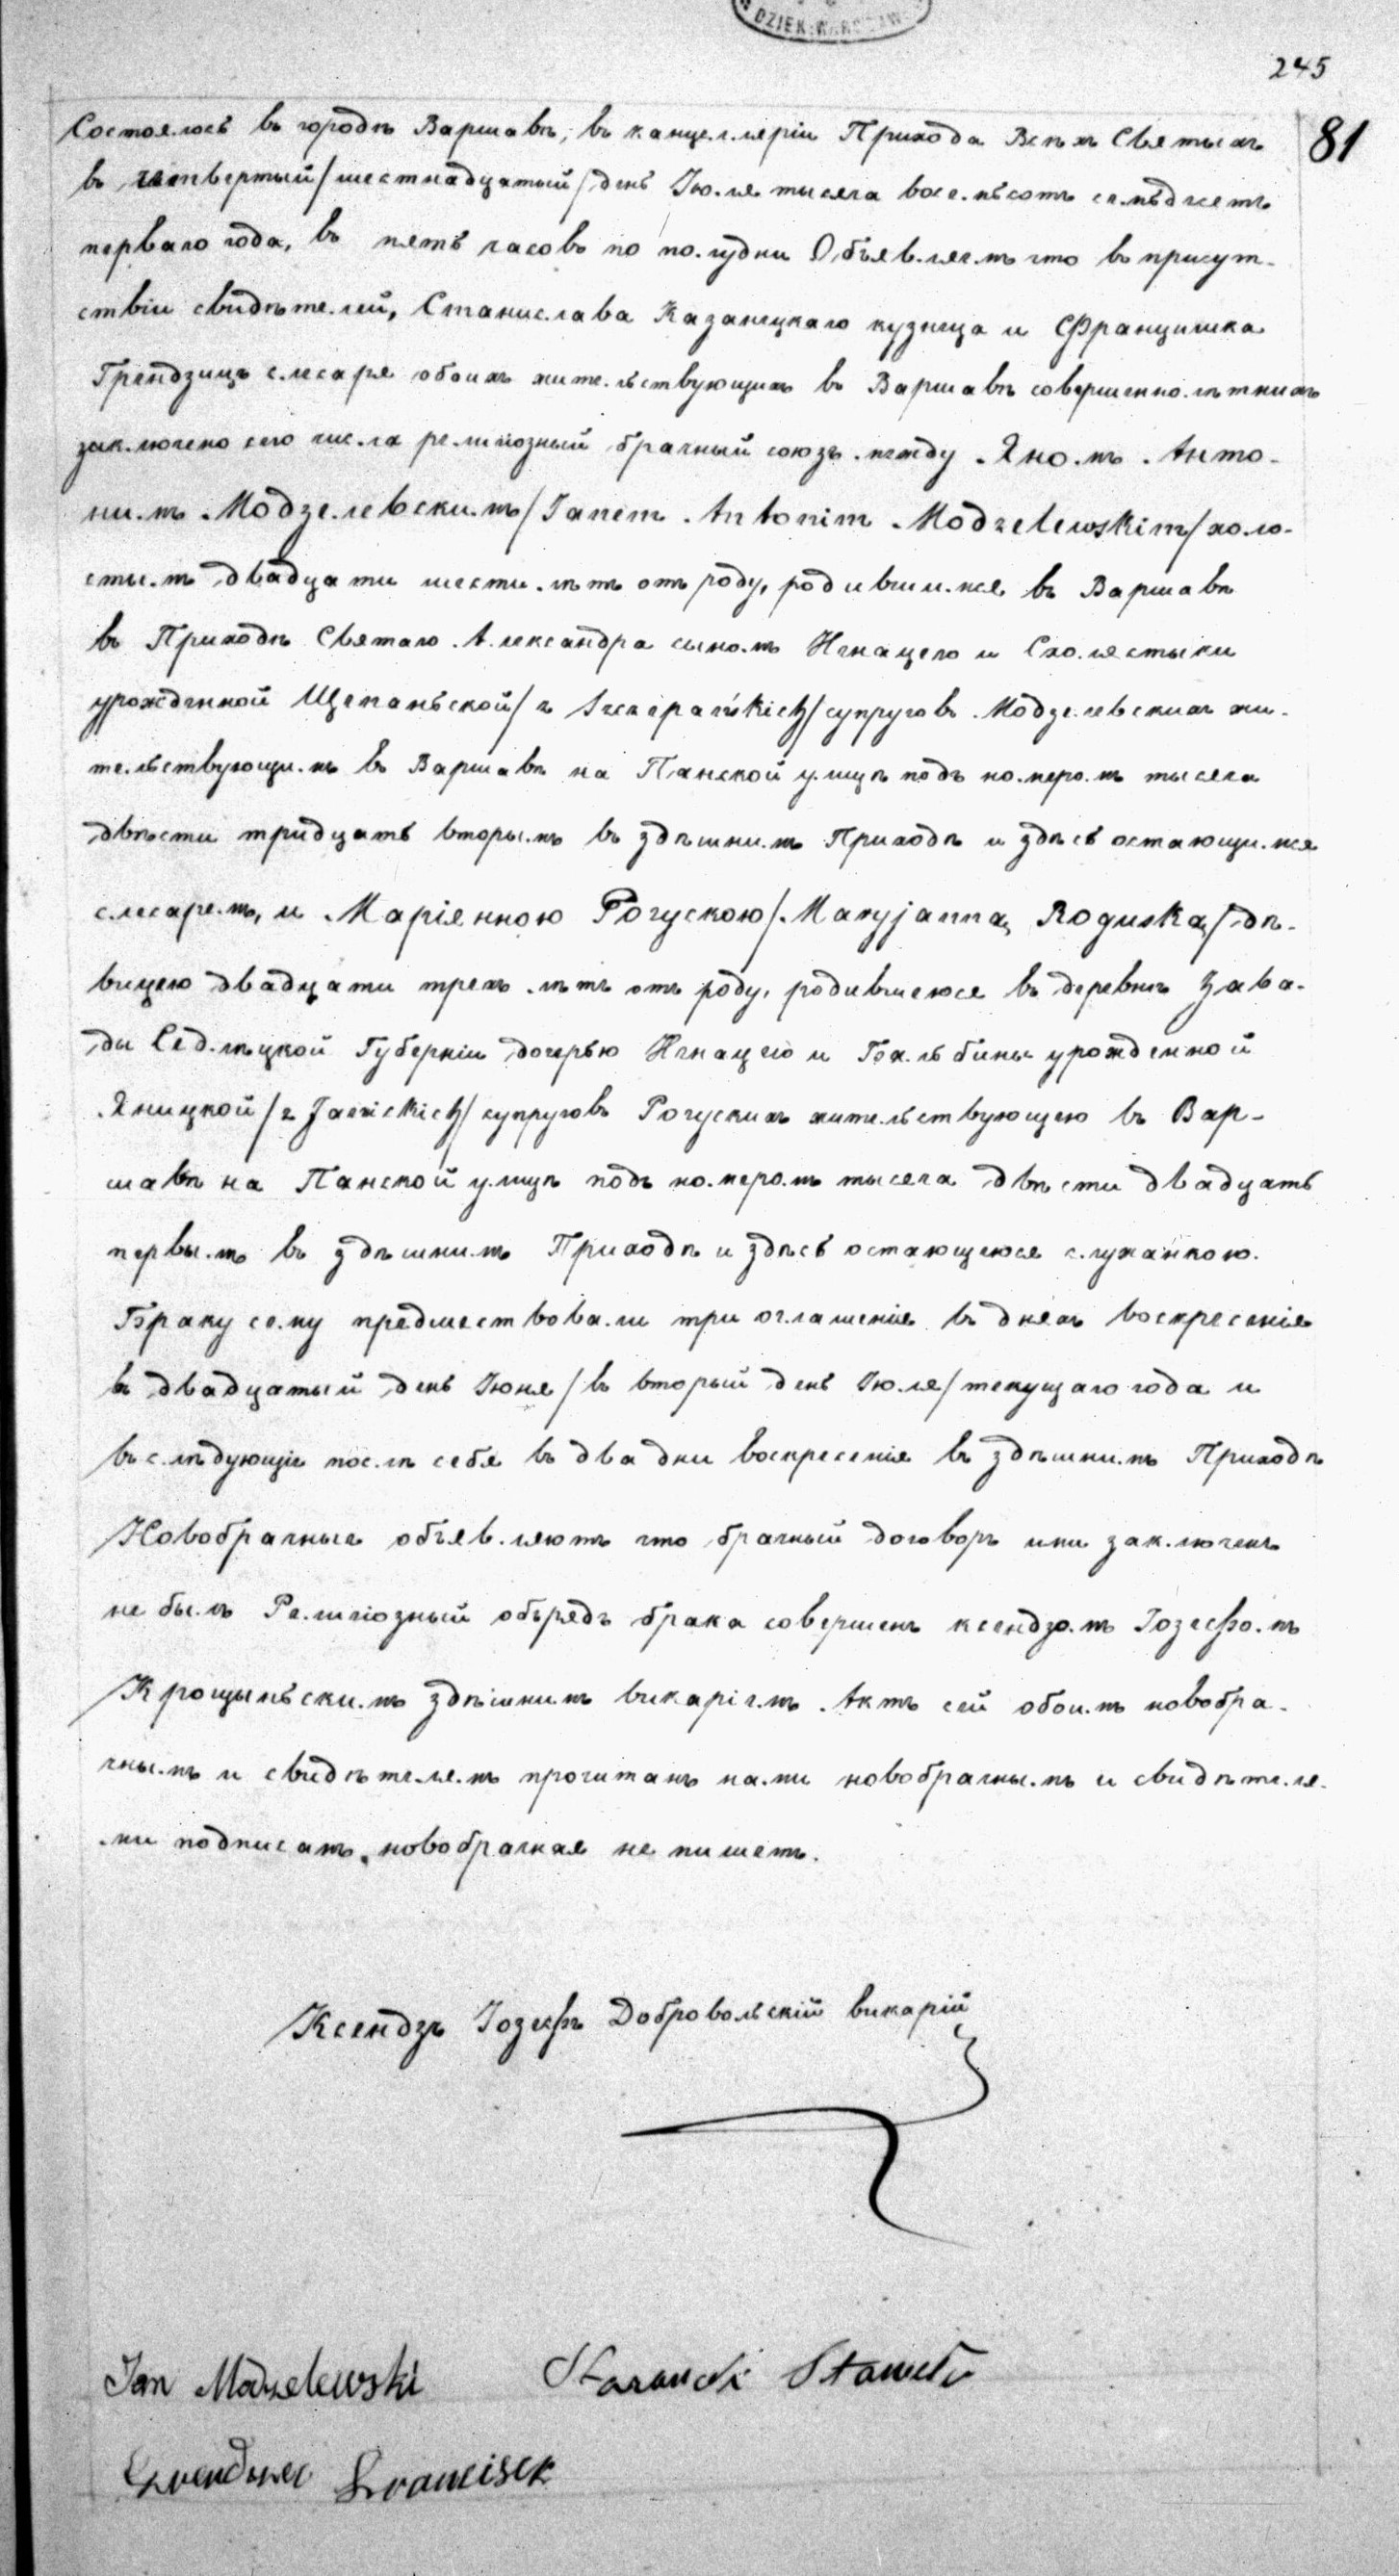 DZIEK. WARSZAW
245
81
Состоялось въ городѣ Варшавѣ, въ канцелляріи Прихода Всѣхъ Святыхъ
въ четвертый/шестнадцатый/ день Іюля тысяча восемьсотъ семьдесятъ
перваго года, въ пять часовъ по полудни Объявляемъ что въ присут-
ствіи свидѣтелей, Станислава Казанецкаго кузнеца и Францишка
Грендзицъ слесаря обоихъ жительствующихъ въ Варшавѣ совершеннолѣтнихъ
заключено сего числа религіозный брачный союзъ между Яномъ Анто-
нимъ Модзелевскимъ/Janem Antonim Modzelewskim/холо-
стымъ двадцати шести лѣтъ отъ роду, родившимся въ Варшавѣ
въ Приходѣ Святаго Александра сыномъ Игнацего и Схолястыки
урожденной Щепаньской/z Szczepańskich/супруговъ Модзелевскихъ жи-
тельствующимъ въ Варшавѣ на Панской улицѣ подъ номеромъ тысяча
двѣсти тридцать вторымъ въ здѣшнимъ Приходѣ и здѣсь остающимся
слесаремъ, и Маріянною Рогускою/Maryjanną Roguską/дѣ-
вицею двадцати трехъ лѣтъ отъ роду, родившеюся въ деревнѣ Зава-
ды Седлѣцкой Губерніи дочерью Игнацего и Бальбины урожденной
Яницкой/z Janickich/супруговъ Рогускихъ жительствующею въ Вар-
шавѣ на Панской улицѣ подъ номеромъ тысяча двѣсти двадцать
первымъ въ здѣшнимъ Приходѣ и здѣсь остающеюся служанкою.
Браку сему предшествовали три оглашенія въ дняхъ воскресенія
въ двадцатый день Іюня/въ вторый день Іюля/текущаго года и
въ слѣдующіе послѣ себя въ два дни воскресенія въ здѣшнимъ Приходѣ
Новобрачные объявляютъ что брачный договоръ ими заключенъ
не былъ Религіозный обърядъ брака совершенъ ксендзомъ Іозефомъ
Крощыньскимъ здѣшнимъ викаріемъ. Актъ сей обоимъ новобра-
чнымъ и свидѣтелямъ прочитанъ нами новобрачнымъ и свидѣтеля-
ми подписанъ, новобрачная не пишетъ.
Ксендзъ Іозефъ Добровольскій викарій
Jan Modzelewski
Francisek